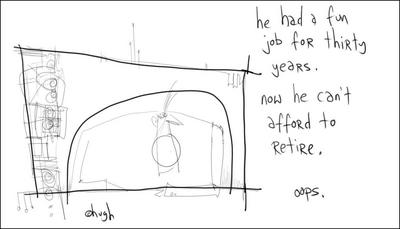 he had a fun
job for thirty
years.
now he can't
afford to
retire.
oops.
@hugh